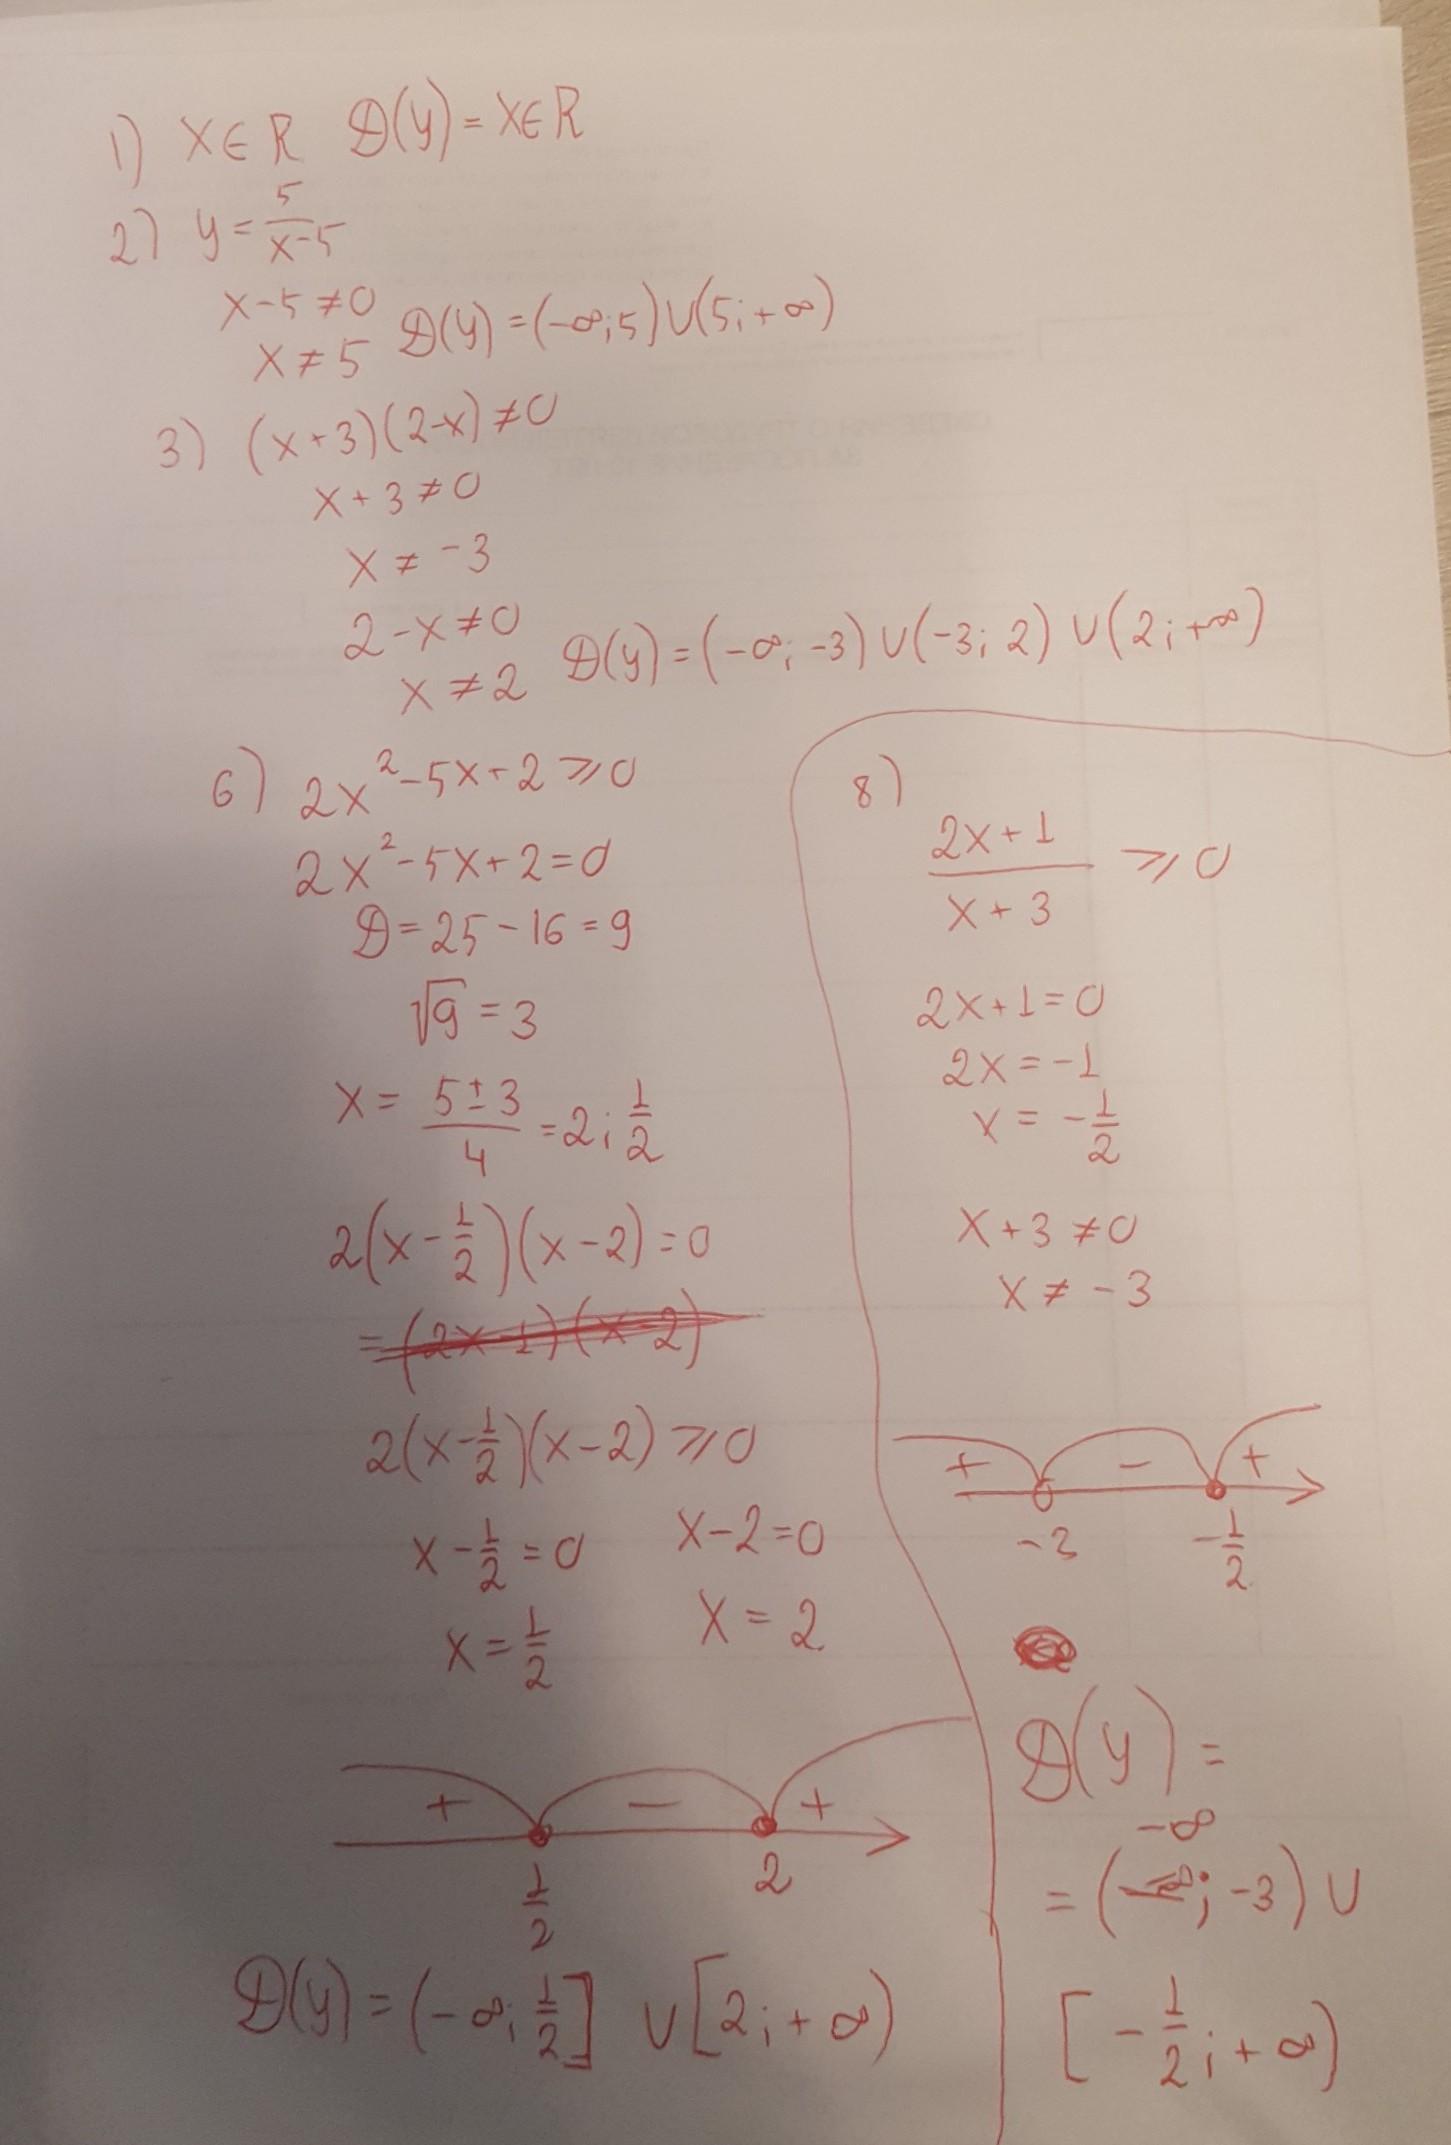 1) x∈R D(y)=x∈R
2) y=5/(x-5)
x-5≠0
x≠5 D(y)=(-∞;5)∪(5;+∞)
3) (x+3)(2-x)≠0
x+3≠0
x≠-3
2-x≠0
x≠2 D(y)=(-∞;-3)∪(-3;2)∪(2;+∞)
6) 2x²-5x+2⩾0
2x²-5x+2=0
D=25-16=9
√9=3
x=(5±3)/4=2;1/2
2(x-1/2)(x-2)=0
=(2x-1)(x-2)
2(x-1/2)(x-2)⩾0
x-1/2=0 x-2=0
x=1/2 x=2
+ - +
1/2 2
D(y)=(-∞;1/2]∪[2;+∞)
8)
(2x+1)/(x+3)⩾0
2x+1=0
2x=-1
x=-1/2
x+3≠0
x≠-3
+ - +
-3 -1/2
D(y)=
-∞
=(-∞;-3)∪
[-1/2;+∞)